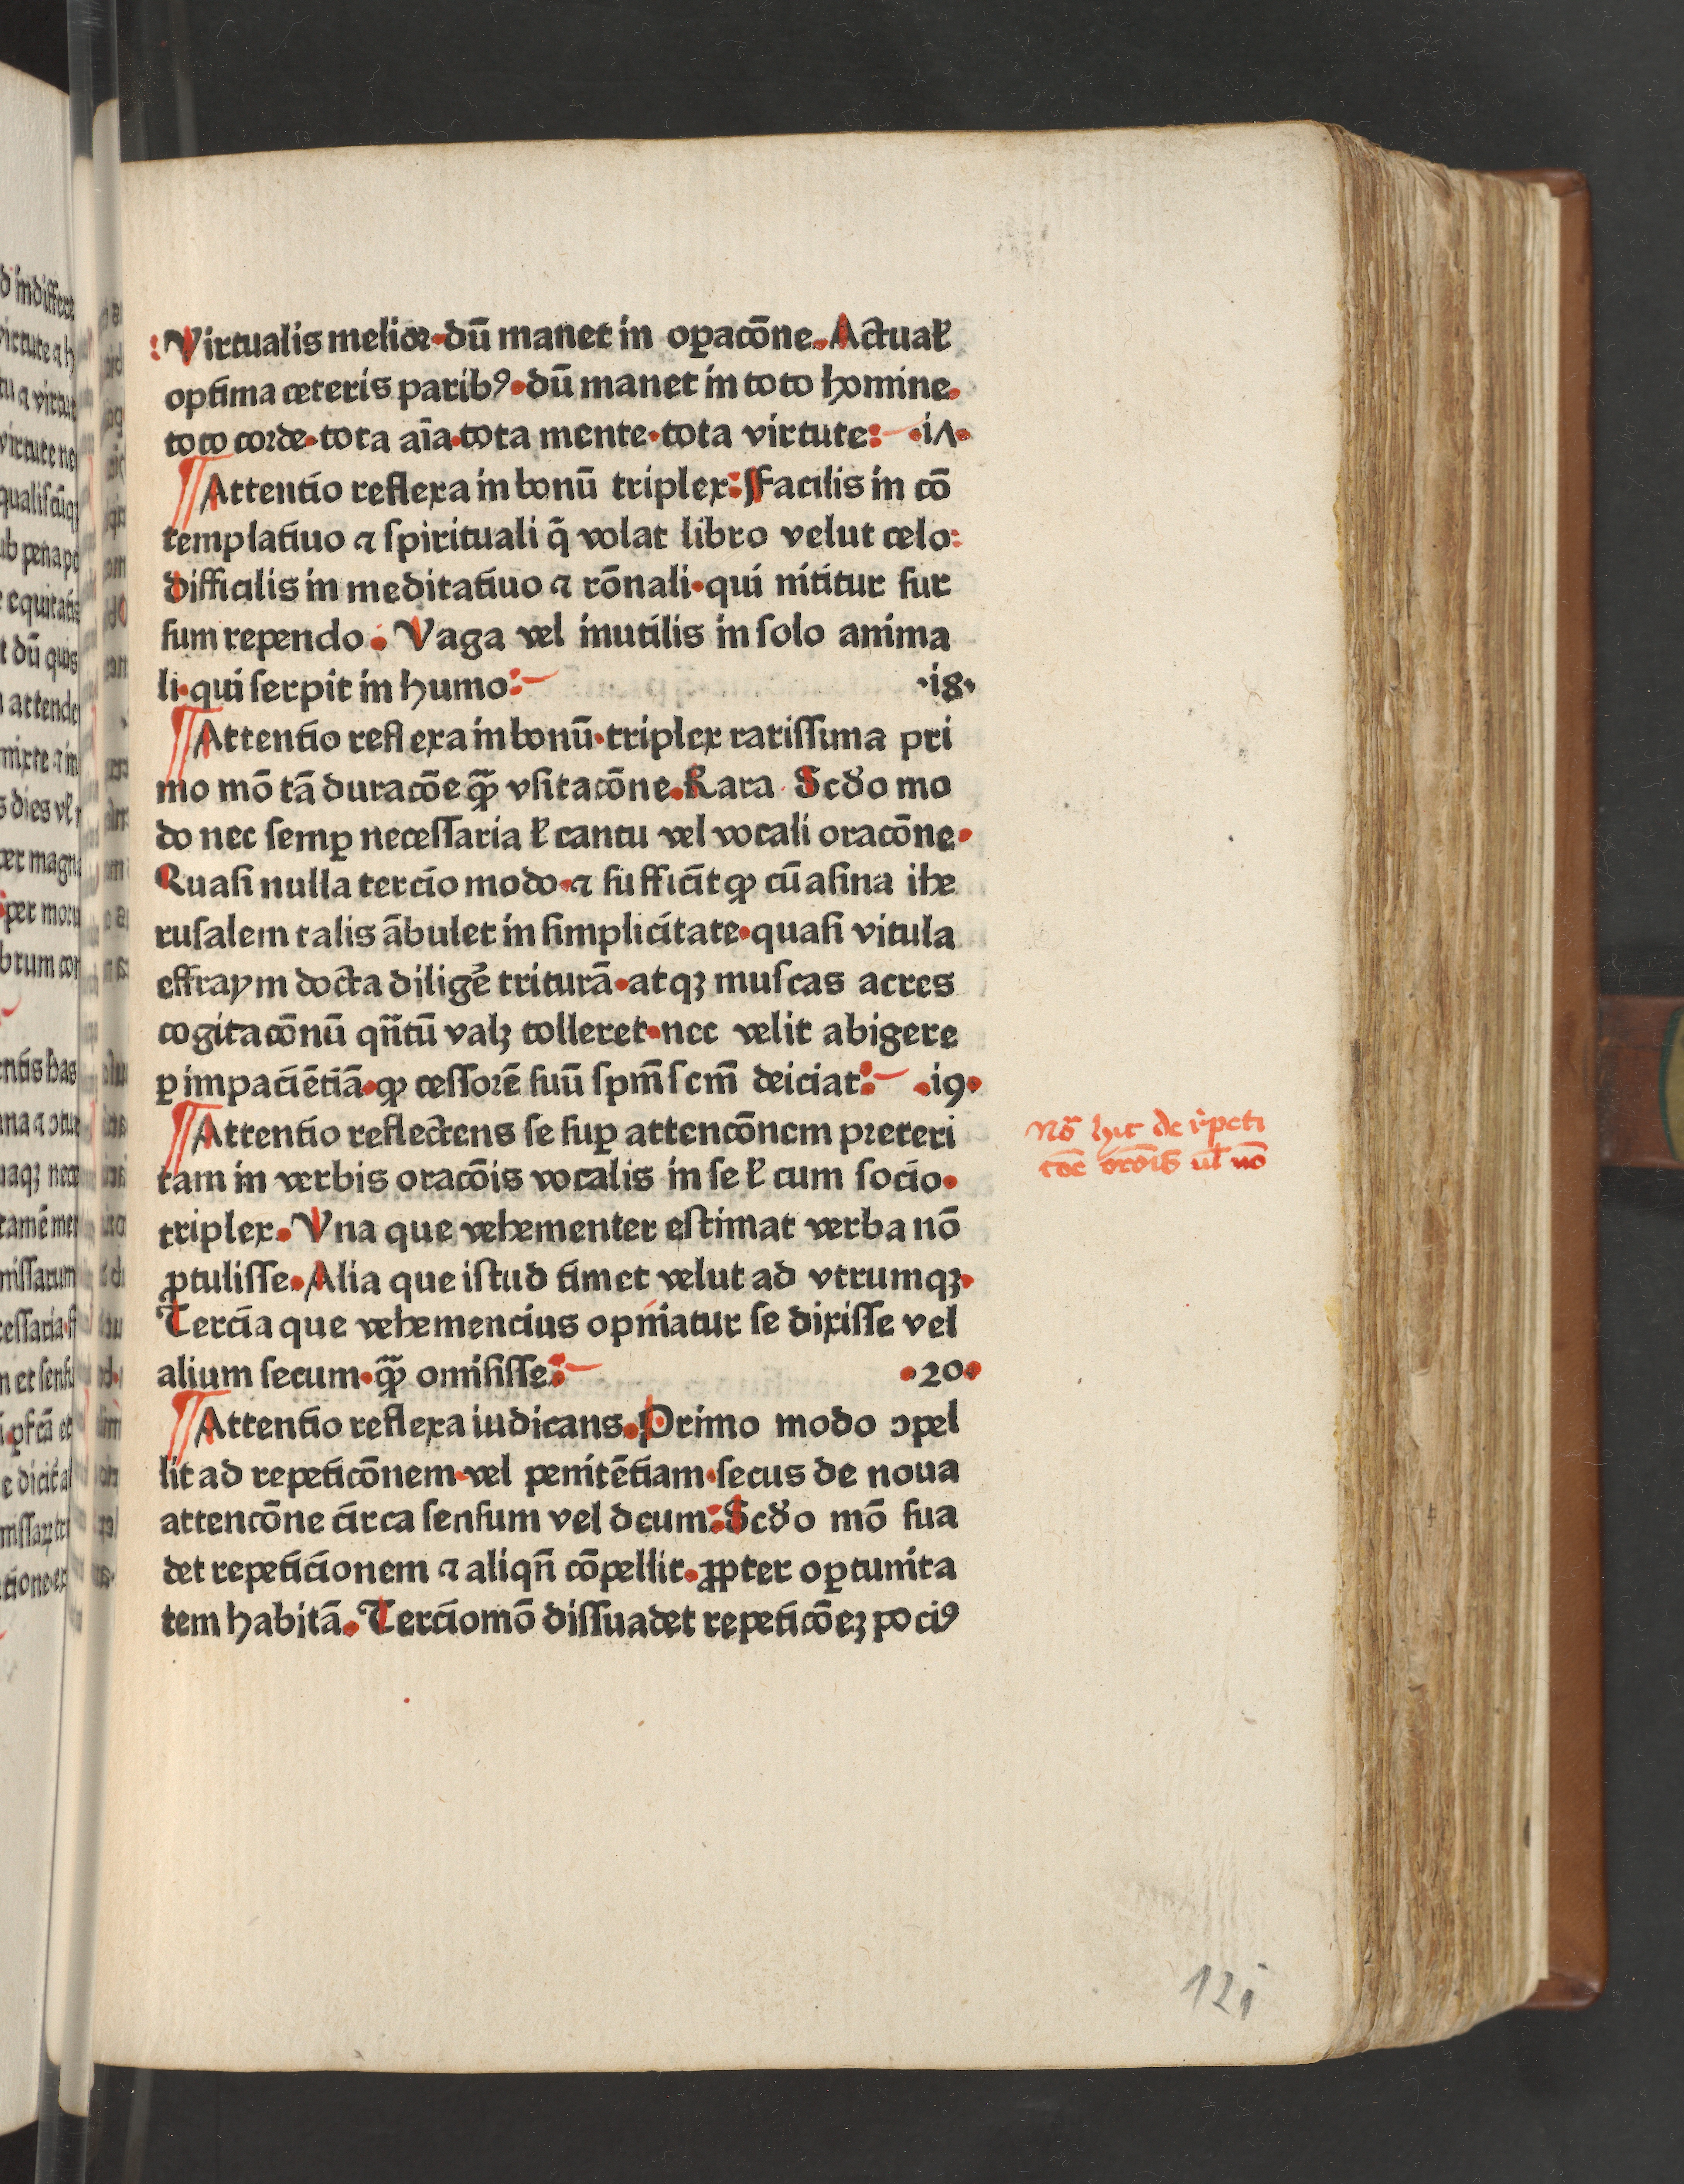 Virtualis melior·dū manet in oꝑacōne.Actual̵
optima ceteris paribꝰ·dū manet in toto homine.
toto corde·tota aīa·tota mente·tota virtute: ·iΛ·
¶Attentio reflexa in bonū triplex:Facilis in cō
templatiuo ⁊ spirituali q̄ volat libro velut celo:
difficilis in meditatiuo ⁊ rōnali·qui nititur sur
sum rependo. Vaga vel inutilis in solo anima
li·qui serpit in humo: ·i8·
¶Attentio reflexa in bonū·triplex rarissima pri
mo mō tā duracōe ꝙ̄ vsitacōne.Rara Scd̓o mo
do nec semꝑ necessaria ł cantu vel vocali oracōne·
Quasi nulla tercio modo·⁊ sufficit ꝙ cū asina ihe
rusalem talis ābulet in simplicitate·quasi vitula
effraym docta diligē triturā·atqꝫ muscas acres
cogitacōnū qn̄tū valꝫ tolleret·nec velit abigere
ꝑ impaciētiā·ꝙ cessorē suū spm̄ scm̄ deiciat: ·i9·
¶Attentio reflectens se suꝑ attencōnem preteri
tam in verbis oracōis vocalis in se ł cum socio·
triplex.Vna que vehementer estimat verba nō
ꝓtulisse.Alia que istud timet velut ad vtrumqꝫ·
Tercia que vehemencius opiniatur se dixisse vel
alium secum·ꝙ̄ omisisse: ·20·
¶Attentio reflexa iudicans.Primo modo ↄpel
lit ad repeticōnem·vel penitētiam·secus de noua
attencōne circa sensum vel deum:Scd̓o mō sua
det repeticionem ⁊ aliqn̄ cōpellit·ꝓpter oꝑtunita
tem habitā.Tercio mō dissuadet repeticōeꝫ pociꝰ
Nō hic de r̓peti
tōe orōis ul̵ nō
121